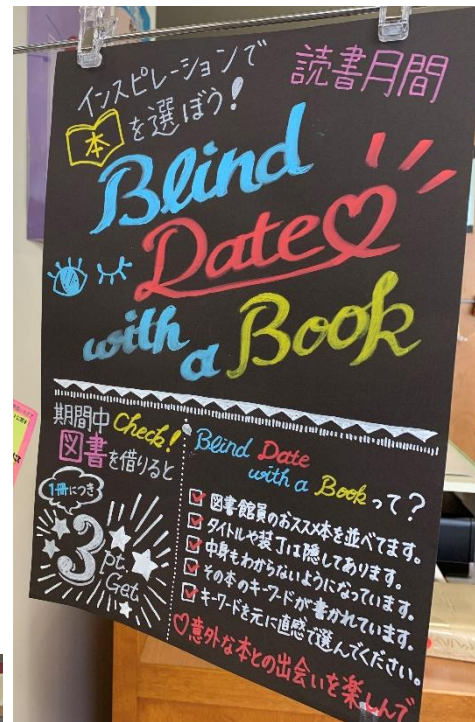 インスピレーションで
本を選ぼう！
読書月間
Blind
Date
with a Book
期間中 Check!
図書を借りると
1冊につき
3pt. Get
Blind Date
with a Bookって？
図書館員のおススメ本を並べてます。
タイトルや装丁は隠してあります。
中身もわからないようになっています。
その本のキーワードが書かれています。
キーワードを元に直感で選んでください。
♡意外な本との出会いを楽しんで